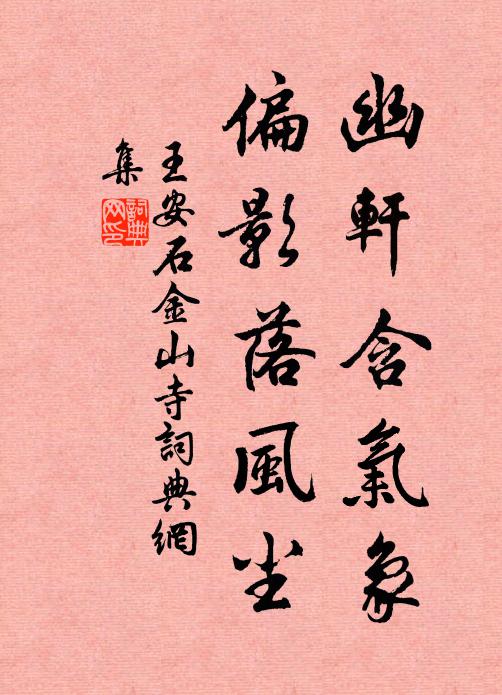 幽軒含氣象
偏影落風塵
王安石金山寺詞典網
集
詞典網印